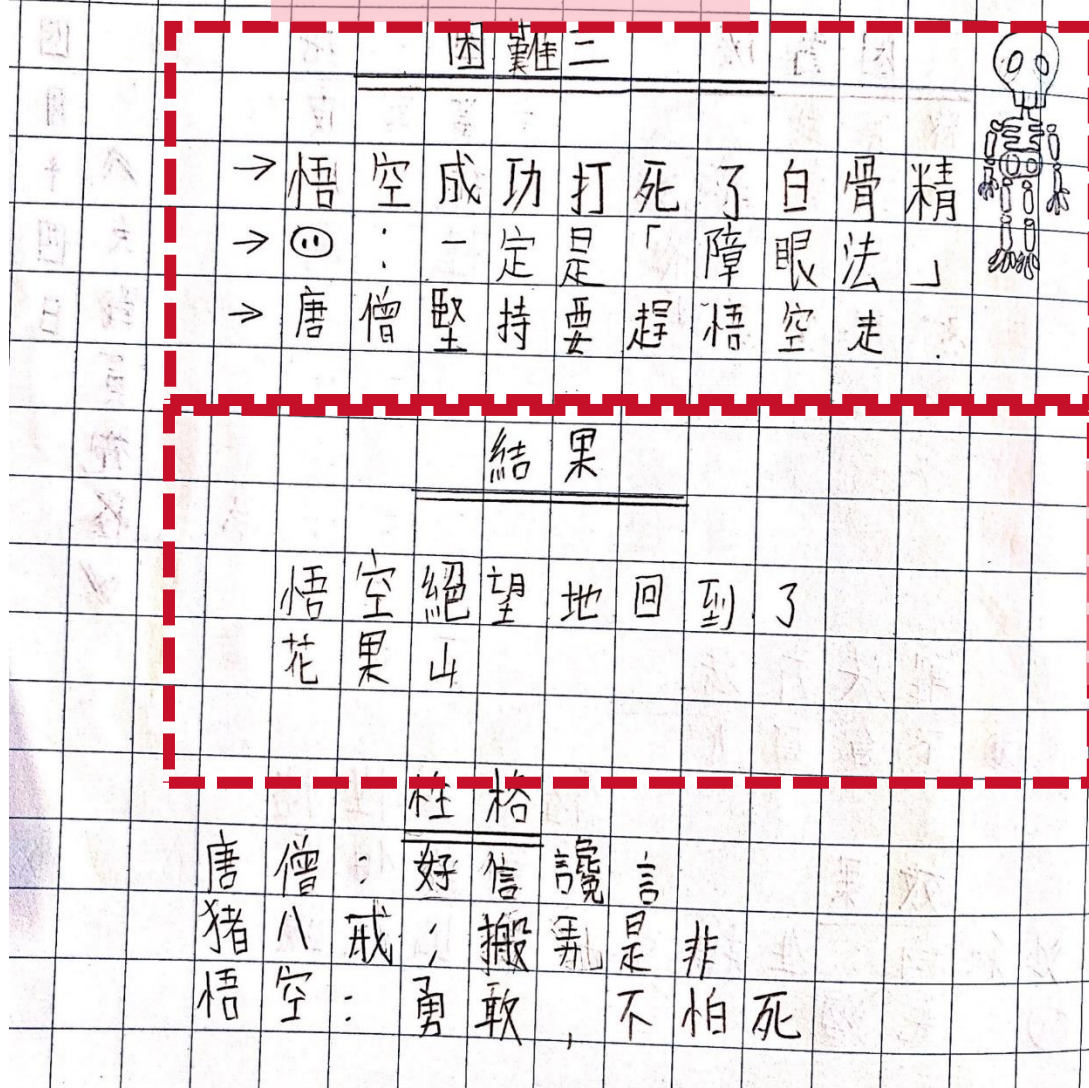 困難三
→悟空成功打死了白骨精
→:一定是「障眼法」
→唐僧堅持要趕悟空走.
結果
悟空絕望地回到了
花果山
性格
唐僧:好信讒言
猪八戒:搬弄是非
悟空:勇敢,不怕死